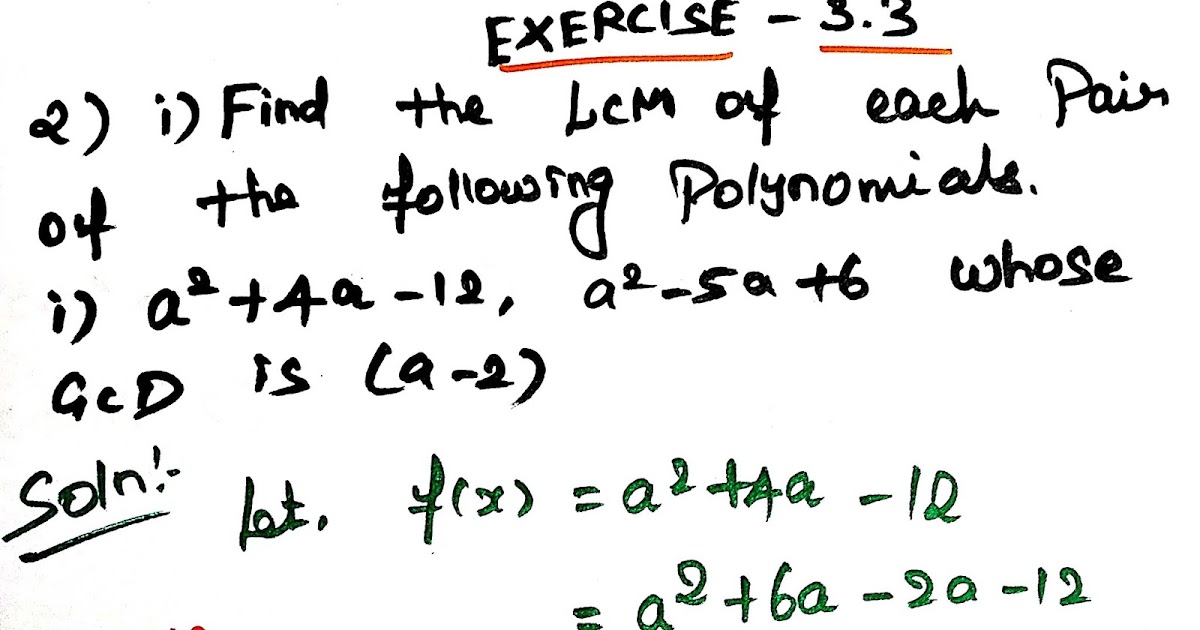 EXERCISE - 3.3
2) i) Find the LCM of each Pair
of the following Polynomials.
i) a²+4a-12, a²-5a+6 whose
GCD is (a-2)
Soln:- Let, f(x) = a²+4a-12
= a²+6a-2a-12